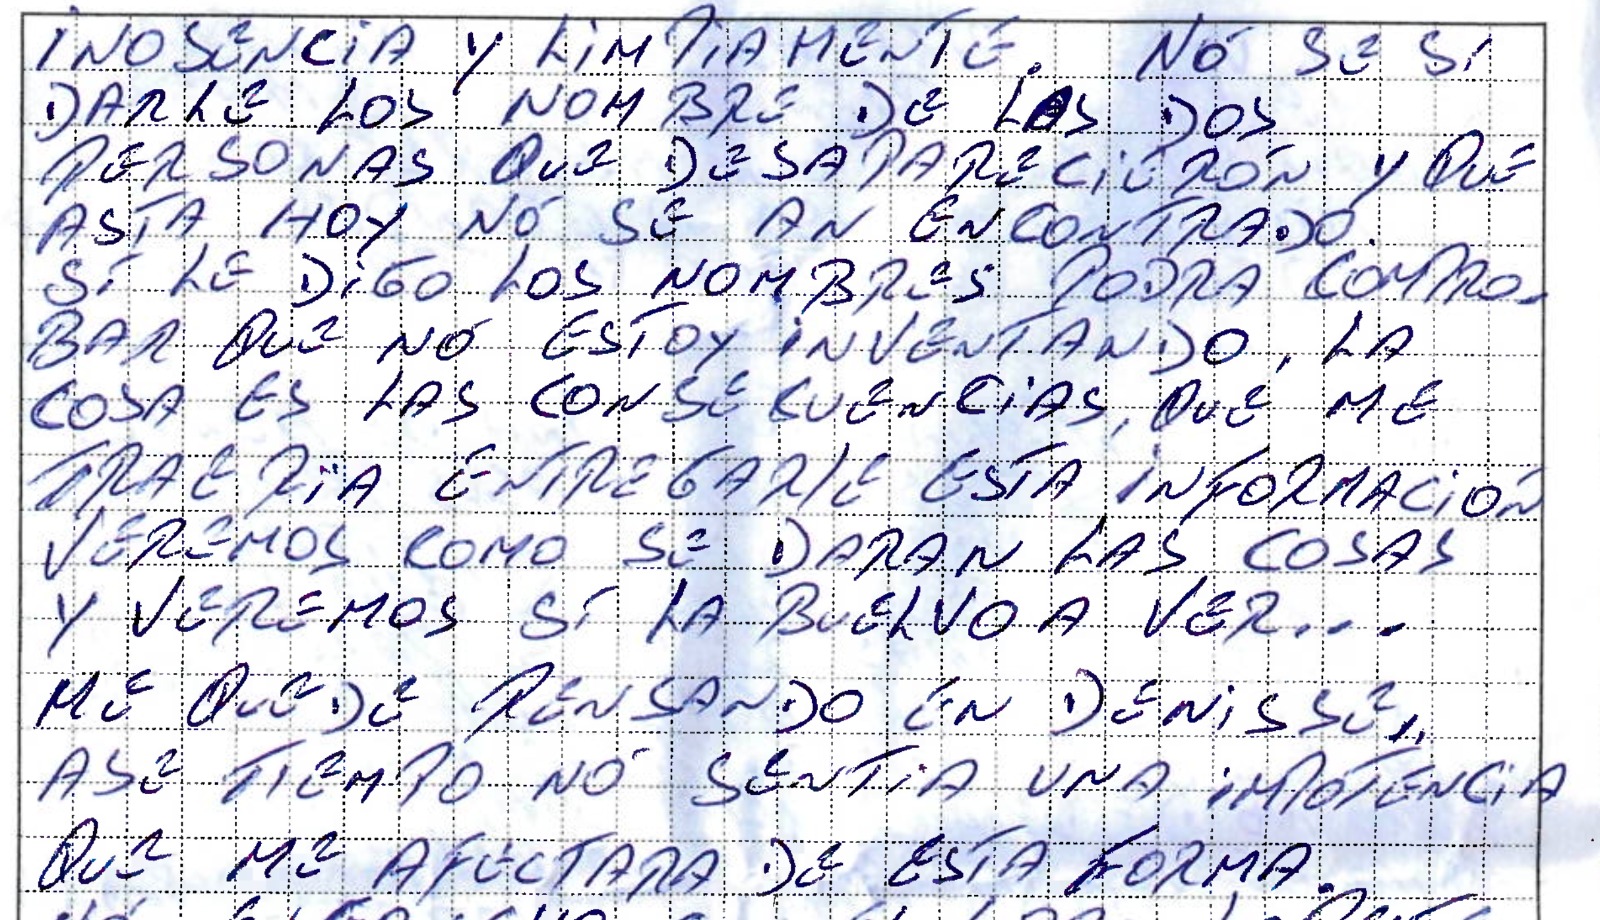 INOSENCIA Y LIMPIAMENTE. NO SE SI
DARLE LOS NOMBRE DE LAS DOS
PERSONAS QUE DESAPARECIERON Y QUE
ASTA HOY NO SE AN ENCONTRADO.
SI LE DIGO LOS NOMBRES PODRA COMPRO-
BAR QUE NO ESTOY INVENTANDO, LA
COSA ES LAS CONSECUENCIAS, QUE ME
TRAERIA ENTREGARLE ESTA INFORMACION
VEREMOS COMO SE DARAN LAS COSAS
Y VEREMOS SI LA BUELVO A VER...
ME QUEDE PENSANDO EN DENISSE,,
ASE TIEMPO NO SENTIA UNA IMPOTENCIA
QUE ME AFECTARA DE ESTA FORMA.